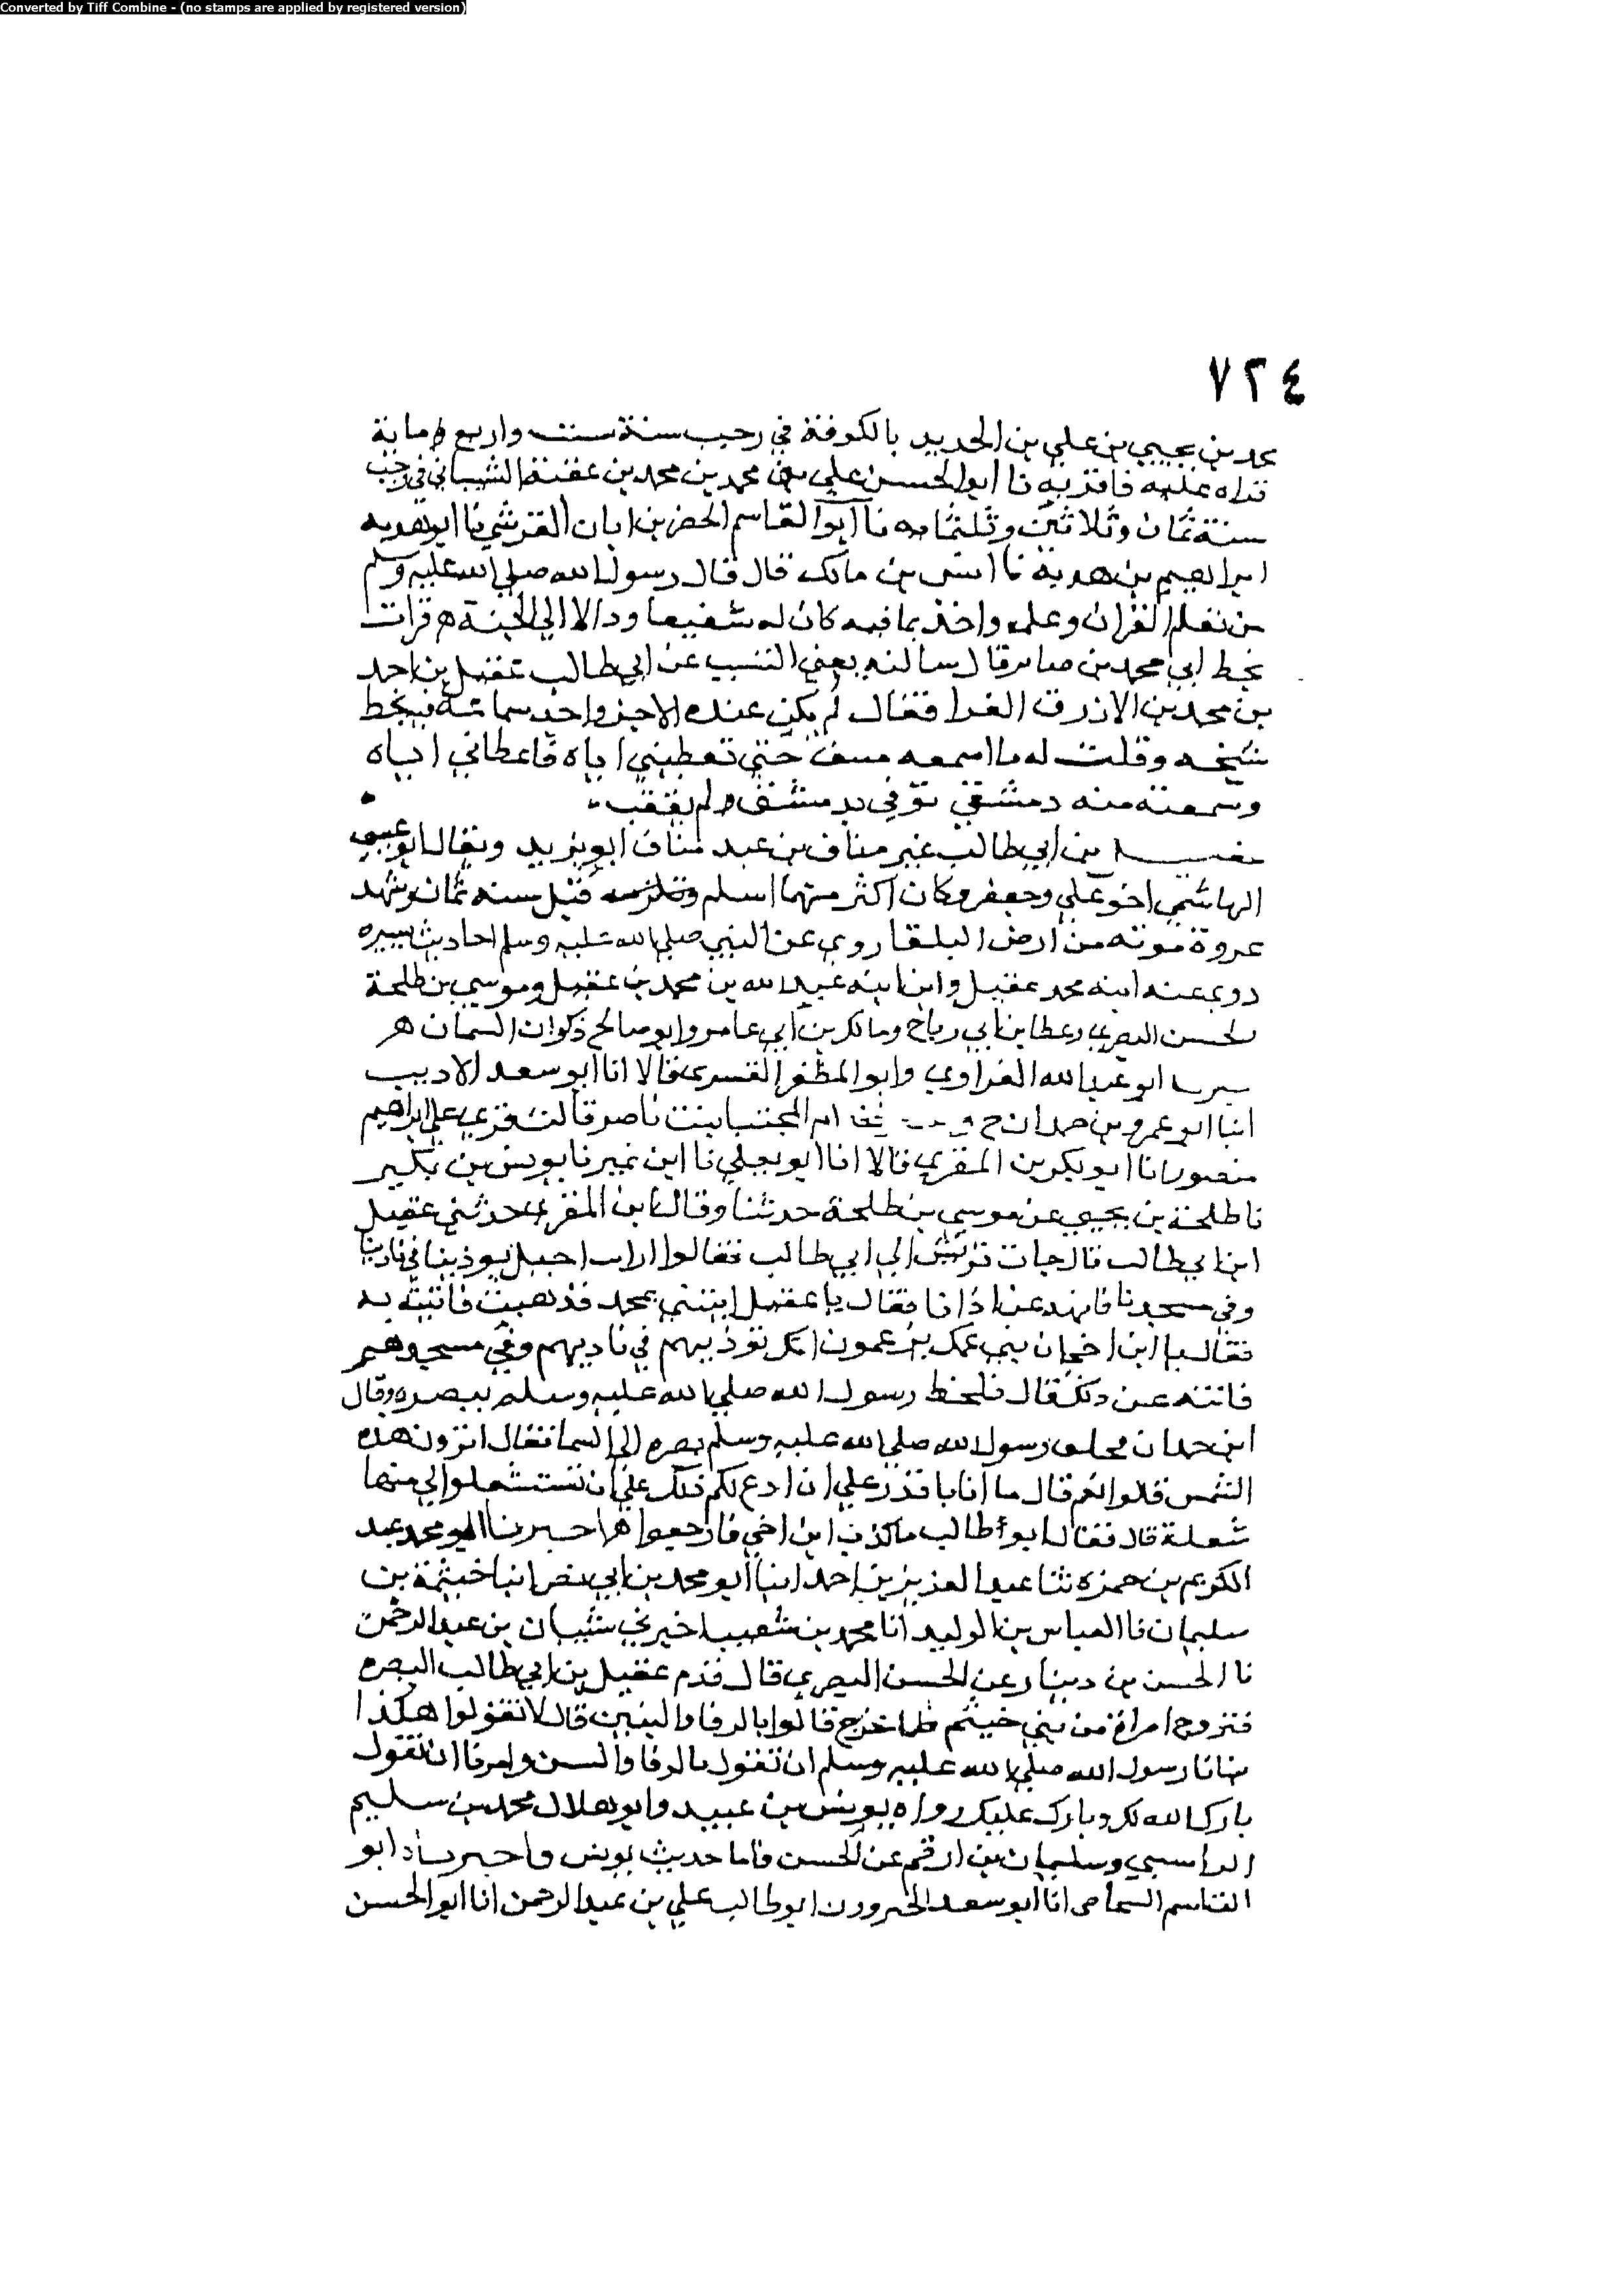 Converted by Tiff Combine - (no stamps are applied by registered version)
٧٢٤
محمد بن يحيي بن علي بن الحديد بالكوفة في رجب سنة ست واربع وماية
قراه عليه فاقر به نا ابو الحسن علي بن محمد بن محمد بن عقبة الشيباني في رجب
سنة ثمان وثلاثين وثلثمايه نا ابوا القاسم الخضر بن ابان القرشي نا ابو هدبه
ابراهيم بن هدبة نا انس بن مالك قال قال رسول الله صلي الله عليه وسلم
من تعلم القران وعلمه واخذ بما فيه كان له شفيعا ودالا الي الجنة ه قرات
بخط ابي محمد بن صابر قال سالته يعني النسيب عن ابي طالب عقيل بن احمد
بن محمد بن الازرق الفرا فقال لم يكن عنده الا جزو احد سماعه بخط
شيخه وقلت له ما اسمعه منك حتي تعطيني اياه فاعطاني اياه
وسمعته منه دمشقي توفي بدمشق ولم يعقب
عقيل بن ابي طالب عبد مناف بن عبد مناف ابو يزيد ويقال ابو عيسي
الهاشمي اخو علي وجعفر وكان اكثر منهما اسلم قبل سنه ثمان وشهد
غزوة موته من ارض البلقا روي عن النبي صلي الله عليه وسلم احاديث يسيره
روي عنه ابنه محمد عقيل وابن ابنه عبد الله بن محمد بن عقيل وموسي بن طلحة
لحسن البصري وعطا بن ابي رباح ومالك بن ابي عامر وابو صالح ذكوان السمان ه
ابو عبد الله الفراوي وابو المظفر القسري قالا انا ابو سعد الاديب
انبا ابو عمرو بن حمدان ح ام المجتبا بنت ناصر قالت قري علي ابراهيم
منصور انا ابو بكر بن المقري قالا انا ابو يعلي نا ابن نمير نا يونس بن بكير
نا طلحة بن يحيي عن موسي بن طلحة حدثنا وقال ابن المقري حدثني عقيل
ابن ابي طالب قال جات قريش الي ابي طالب فقالوا ان ابن اخيك يوذينا في نادينا
وفي مسجدنا فانهه عن اذانا فقال يا عقيل ايتني بمحمد فذهبت فاتيته به
فقال يا ابن اخي ان بني عمك يزعمون انك توذيهم في ناديهم وفي مسجدهم
فانته عن ذلك قال فلحظ رسول الله صلي الله عليه وسلم ببصره وقال
ابن حمدان فحلق رسول الله صلي الله عليه وسلم بصره الي السما فقال اترون هذه
الشمس قالوا نعم قال ما انا باقدر علي ان ادع لكم ذلك علي ان تستشعلوا لي منها
شعلة قال فقال ابو طالب ما كذب ابن اخي فارجعوا ه اخبرنا ابو محمد عبد
الكريم بن حمزه ثنا عبد العزيز بن احمد انبا ابو محمد بن ابي نصر انبا خيثمة بن
سليمان نا العباس بن الوليد انا محمد بن شعيب اخبرني شيبان بن عبد الرحمن
نا الحسن بن دينار عن الحسن البصري قال قدم عقيل بن ابي طالب البصره
فتزوج امراة من بني خيثم فلما خرج قالوا بالرفا والبنين قال لا تقولوا هكذا
نهانا رسول الله صلي الله عليه وسلم ان نقول بالرفا والبنين وامرنا ان نقول
بارك الله لك وبارك عليك رواه يونس بن عبيد وابو هلال محمد بن سليم
الراسبي وسليمان بن ارقم عن الحسن فاما حديث يونس فاخبرناه ابو
القاسم الشحامي انا ابو سعد ابو طالب علي بن عبد الرحمن انا ابو الحسن